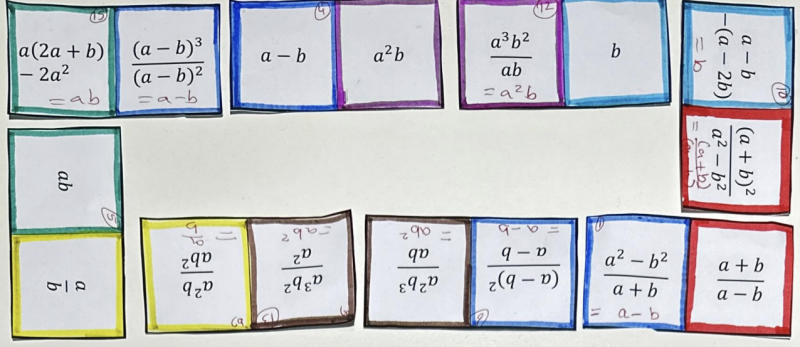 15
a(2a + b)
− 2a²
= ab
(a − b)³
(a − b)²
= a-b
a − b
a²b
12
a³b²
ab
= a²b
b
10
a − b
−(a − 2b)
= b
(a + b)²
a² − b²
ab
5
a
b
a²b
ab²
= a
b
a³b²
a²
= ab²
13
a²b³
ab
= ab²
(a − b)²
a − b
= a-b
a² − b²
a + b
= a-b
a + b
a − b